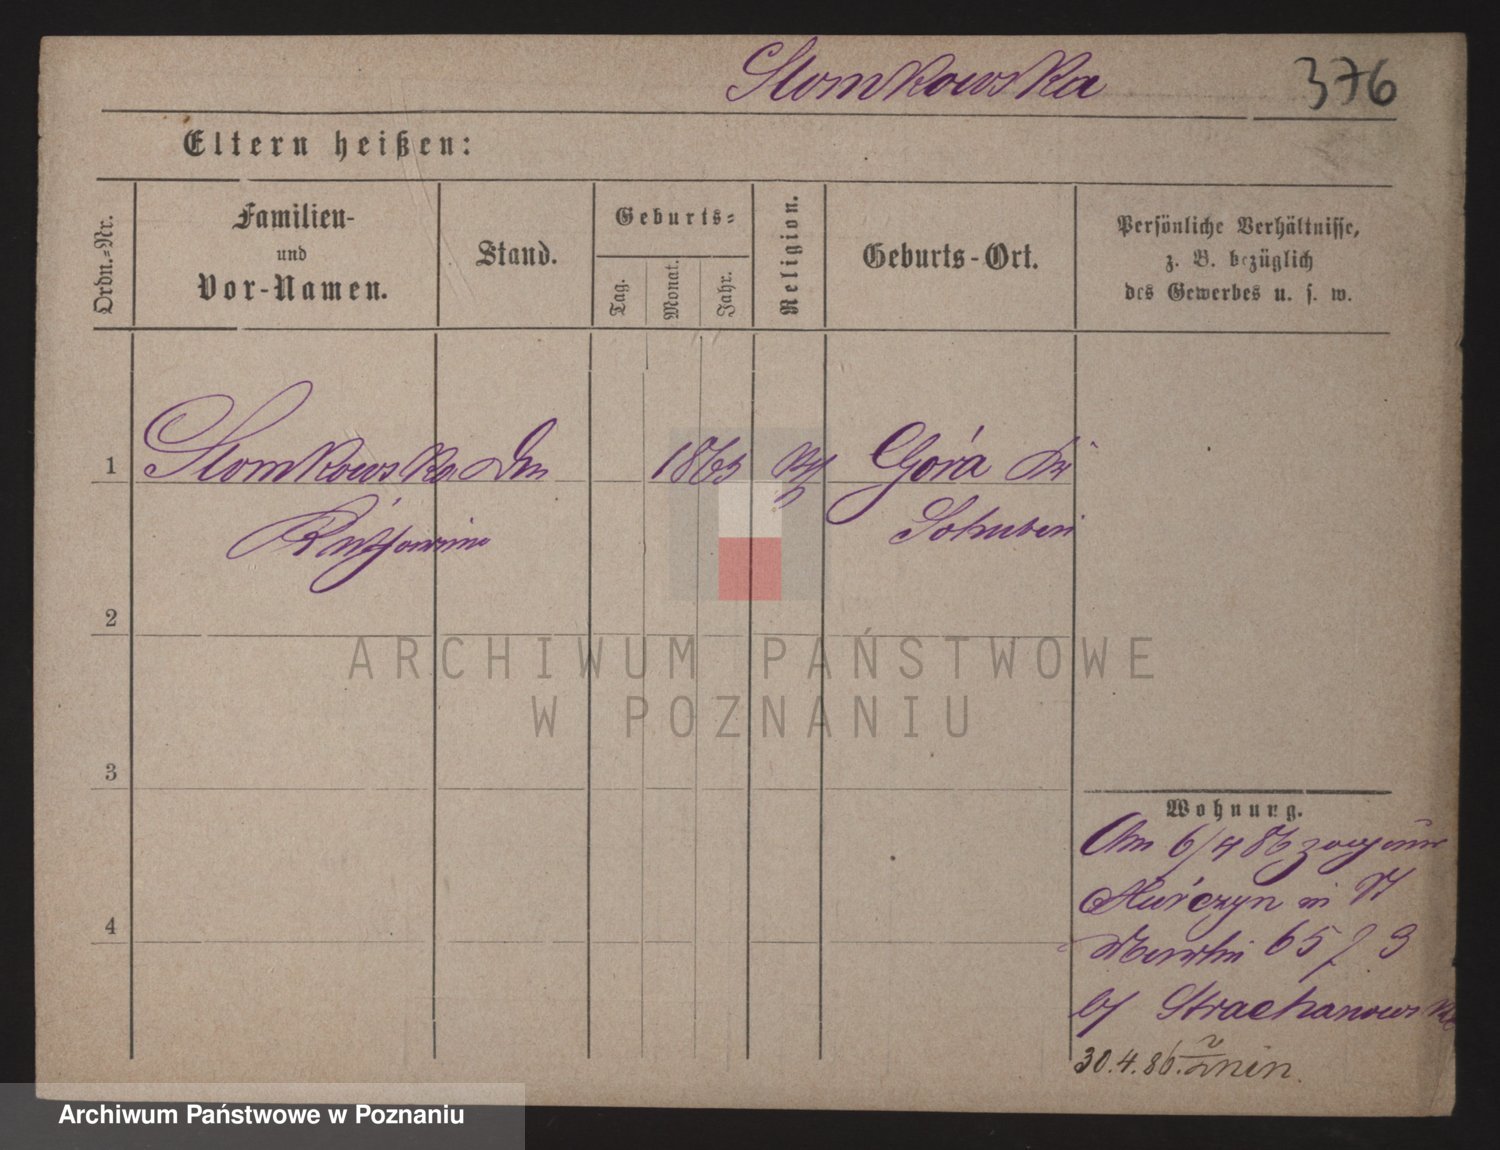 Slomkowska 376
Eltern heißen:
Ordn.-Nr.
Familien-
und
Vor-Namen.
Stand.
Geburts-
Tag.
Monat.
Jahr.
Religion.
Geburts-Ort.
Persönliche Verhältnisse,
z. B. bezüglich
des Gewerbes u. s. w.
1 Slomkowska 1865 Góra
2
3
4
Wohnung.
Am 6/4 86
in St
Martin 65
Strachanowska
30.4.86. Znin.
ARCHIWUM PAŃSTWOWE
W POZNANIU
Archiwum Państwowe w Poznaniu